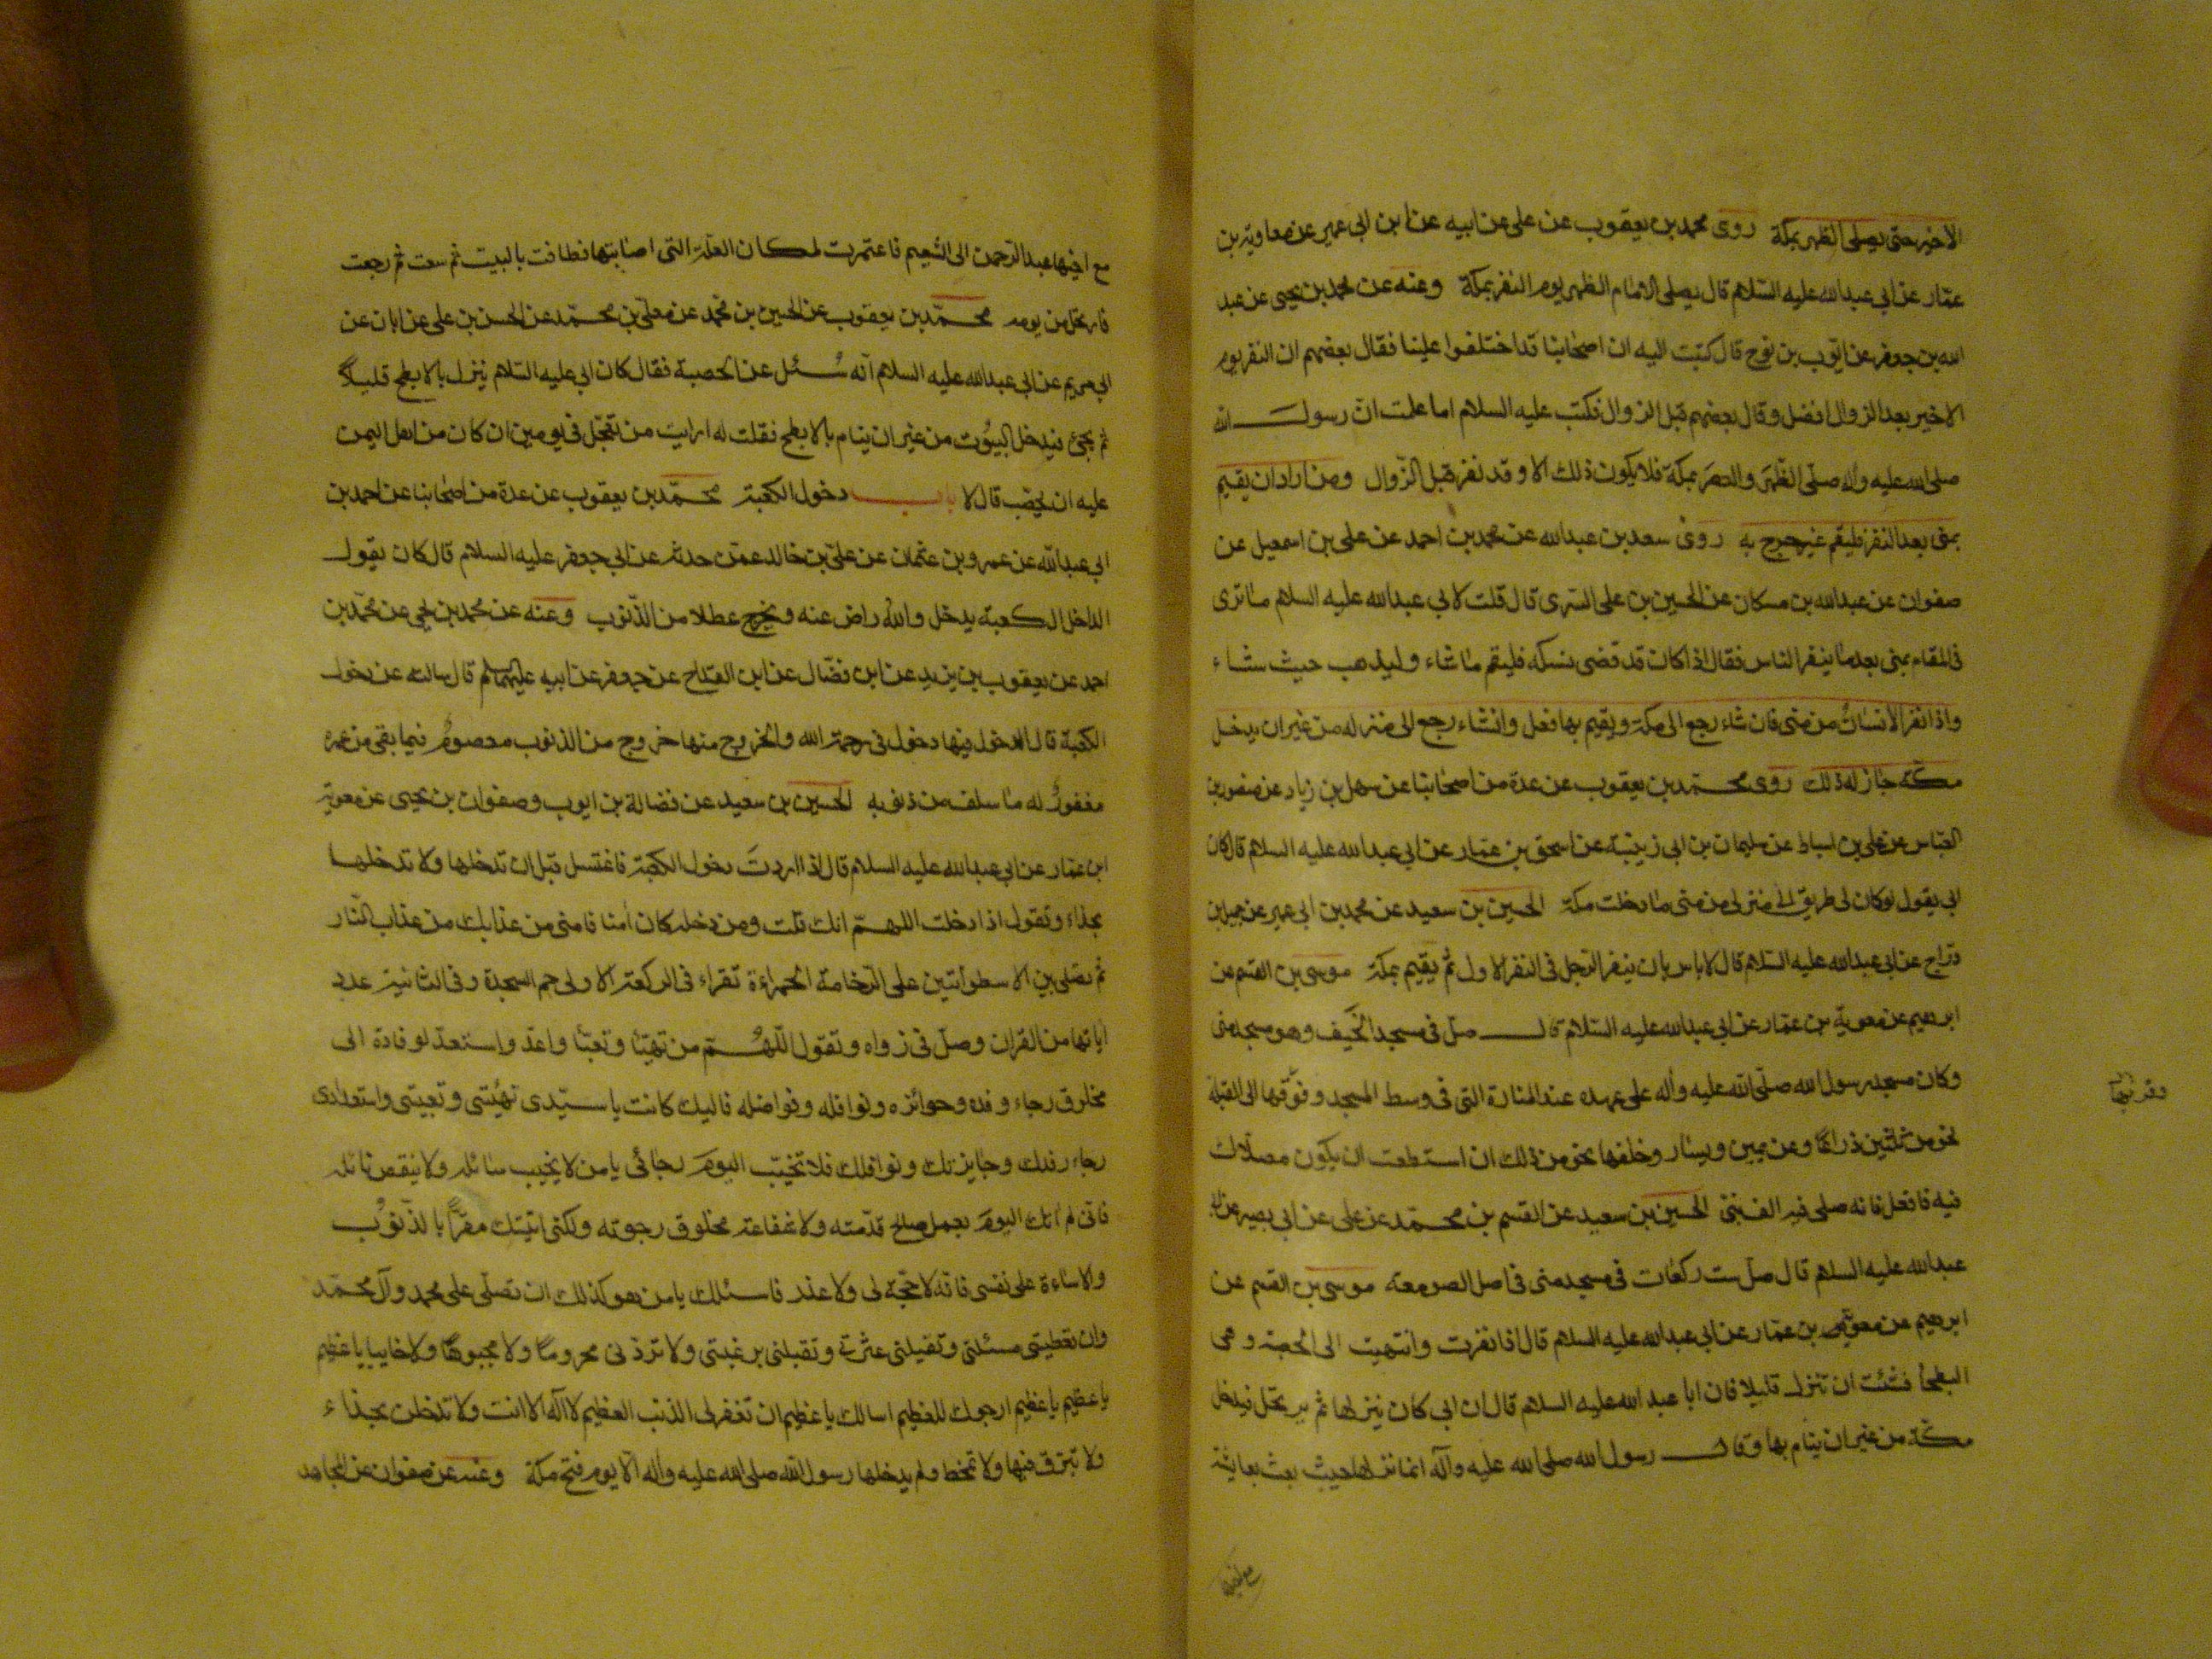 الاخير حتى يصلى الظهر بمكة روى محمد بن يعقوب عن على عن ابيه عن ابن ابى عمير عن معاوية بن
عمّار عن ابى عبدالله عليه السّلام قال يصلى الامام الظهر يوم النفر بمكة وعنه عن محمد بن يحيى عن عبد
الله بن جعفر عن ايّوب بن نوح قال كتبت اليه ان اصحابنا قد اختلفوا علينا فقال بعضهم ان النفر يوم
الاخير بعد الزوال افضل وقال بعضهم قبل الزوال فكتب عليه السلام اما علمت انّ رسول الله
صلى الله عليه وآله صلّى الظّهر والعصر بمكة فلا يكون ذلك الا وقد نفر قبل الزّوال ومن اراد ان يقيم
بمنى بعد النفر فليقم غير حرج به روى سعد بن عبدالله عن محمد بن احمد عن على بن اسمعيل عن
صفوان عن عبدالله بن مسكان عن الحسين بن على السّرى قال قلت لابى عبدالله عليه السلام ما ترى
فى المقام بمنى بعد ما ينفر الناس فقال اذا كان قد قضى نسكه فليقم ما شاء وليذهب حيث شاء
واذا نفر الانسانُ من منى فان شاء رجع الى مكة ويقيم بها فعل وانشاء رجع الى منزله من غير ان يدخل
مكّة جاز له ذلك روى محمّد بن يعقوب عن عدة من اصحابنا عن سهل بن زياد عن منصور بن
العبّاس عن على بن اسباط عن سليمان بن ابى زينبة عن اسحق بن عمّار عن ابى عبدالله عليه السلام قال كان
ابى يقول لو كان لى طريق الى منزلى من منى ما دخلت مكة الحسين بن سعيد عن محمد بن ابى عمير عن جميل بن
درّاج عن ابى عبدالله عليه السّلام قال لا باس بان ينفر الرّجل فى النفر الاول ثمّ يقيم بمكة موسى بن القسم عن
ابرهيم عن معوية بن عمّار عن ابى عبدالله عليه السّلام قال صلّ فى مسجد الخيف وهو مسجد منى
وكان مسجد رسول الله صلّى الله عليه وآله على عهده عند المنارة التى فى وسط المسجد وفوقها الى القبلة
نحو من ثلثين ذراعًا وعن يمين ويسار وخلفها نحو من ذلك ان استطعت ان يكون مصلّاك
فيه فافعل فانه صلى فيه الف نبى الحسين بن سعيد عن القسم بن محمّد عن على عن ابى بصير عن ابى
عبدالله عليه السلام قال صلّ ست ركعات فى مسجد منى فى اصل الصومعة موسى بن القسم عن
ابرهيم عن معوية بن عمّار عن ابى عبدالله عليه السلام قال اذا نفرت وانتهيت الى الحصبة وهى
البطحا فشئت ان تنزل قليلا فان ابا عبدالله عليه السلام قال ان ابى كان ينزلها ثم يرتحل فيدخل
مكّة من غير ان ينام بها وقال رسول الله صلى الله عليه وآله انما نزلها حيث بعث بعايشة
مع اخيها عبدالرّحمن الى التّنعيم فاعتمرت لمكان العلّة التى اصابتها فطافت بالبيت ثم سعت ثم رجعت
فارتحل من يومه محمّد بن يعقوب عن الحسين بن محمّد عن معلّى بن محمّد عن الحسن بن على عن ابان عن
ابى مريم عن ابى عبدالله عليه السلام انّه سُئل عن الحصبة فقال كان ابى عليه السّلام ينزل بالابطح قليلاً
ثم يجئ فيدخل البيُوت من غير ان ينام بالابطح فقلت له ارايت من تعجّل فى يومين ان كان من اهل اليمن
عليه ان يحصّب قال لا باب دخول الكعبة محمّد بن يعقوب عن عدة من اصحابنا عن احمد بن
ابى عبدالله عن عمرو بن عثمان عن علىّ بن خالد عمّن حدثه عن ابى جعفر عليه السلام قال كان يقول
الداخل الكعبة يدخل والله راض عنه ويخرج عطلا من الذّنوب وعنه عن محمد بن يحيى عن محمّد بن
احمد عن يعقوب بن يزيد عن ابن فضّال عن ابن القدّاح عن جعفر عن ابيه عليهما السلم قال سالته عن دخول
الكعبة قال الدخول فيها دخول فى رحمة الله والخروج منها خروج من الذنوب معصومٌ فيما بقى من عمره
مغفورٌ له ما سلف من ذنوبه الحسين بن سعيد عن فضالة بن ايوب وصفوان بن يحيى عن معوية
ابن عمّار عن ابى عبدالله عليه السلام قال اذا اردتَ دخول الكعبة فاغتسل قبل ان تدخلها ولا تدخلها
بحذاء وتقول اذا دخلت اللهمّ انك قلت ومن دخله كان آمنا فامنى من عذابك من عذاب النّار
ثم تصلى بين الاسطوانتين على الرّخامة الحمراء تقراء فى الركعة الاولى حم السجدة وفى الثانية عدد
اياتها من القران وصلّ فى زواياه وتقول اللّهُمّ من تهيّا وتعبّا واعدّ واستعدّ لوفادة الى
مخلوق رجاء رفده وجوائزه ونوافله وفواضله فاليك كانت يا سيّدى تهيُئتى وتعبيتى واستعدادى
رجاء رفدك وجايزتك ونوافلك فلا تخيّب اليومَ رجائى يا من لا يخيب سائله ولا ينقص نائله
فانى لم اتك اليومَ بعمل صالح قدّمته ولا شفاعة مخلوق رجوته ولكنى اتيتك مقرًّا بالذّنوُب
والاساءة على نفسى فانّه لا حجّة لى ولا عذر فاسئلك يا من هو كذلك ان تصلّى على محمد وآل محمّد
وان تعطينى مسئلتى وتقيلنى عثرتى وتقبلنى برغبتى ولا تردّنى محروما ولا مجبوها ولا خايبا يا عظيم
يا عظيم يا عظيم ارجوك للعظيم اسالك يا عظيم ان تغفر لى الذنب العظيم لا آله الا انت ولا تدخلن بحذاء
ولا تبزق فيها ولا تمخط ولم يدخلها رسول الله صلى الله عليه وآله الّا يوم فتح مكة وعنه عن صفوان عن